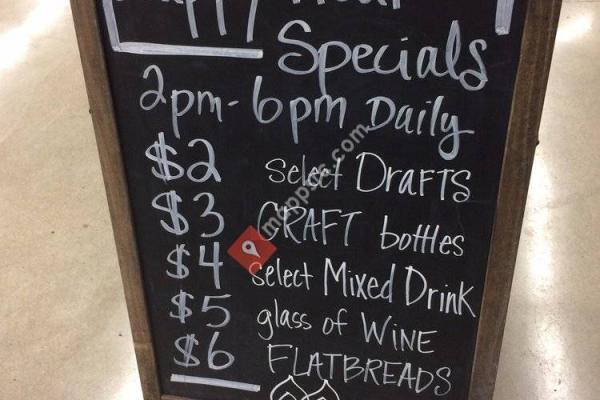 Happy Hour
Specials
2pm-6pm Daily
$2 select DRAFTS
$3 CRAFT bottles
$4 select Mixed Drink
$5 glass of WINE
$6 FLATBREADS
mappses.com